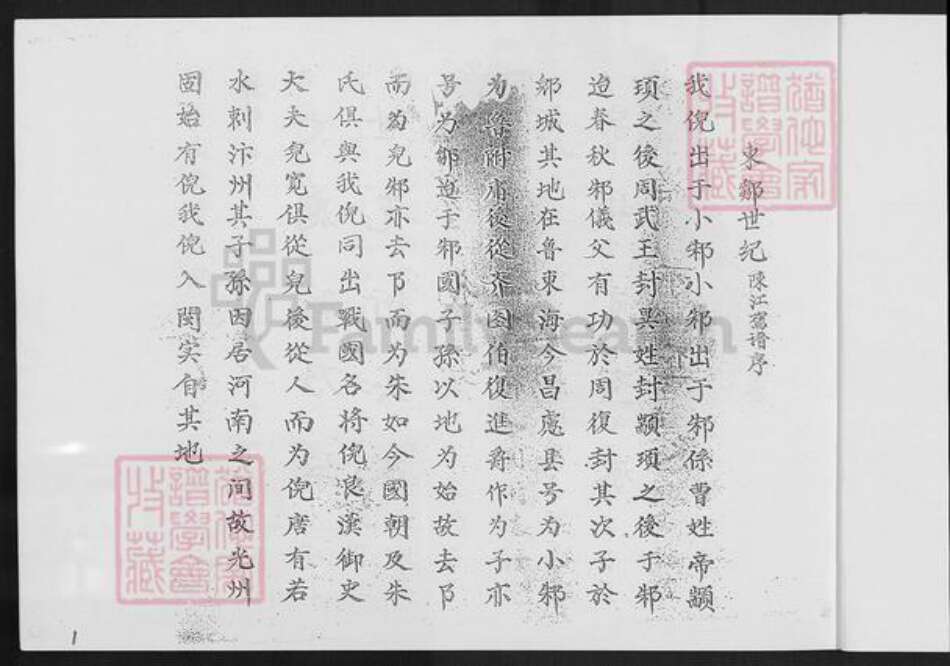 東鄒世纪 陳江舊谱序
我倪出于小邾小邾出于邾係曹姓帝顓
頊之後周武王封異姓封顓頊之後于邾
迨春秋邾儀父有功於周復封其次子於
郳城其地在鲁東海今昌慮县号为小邾
为魯附庸後從齐图伯復進爵作为子亦
号为郳迨于邾國子孫以地为始故去阝
而为兒邾亦去阝而为朱如今國朝及朱
氏俱與我倪同出戰國名将倪良漢御史
大夫兒宽俱從兒後從人而为倪唐有若
水刺汴州其子孫因居河南之间故光州
固始有倪我倪入閩实自其地
譜學會
收藏
譜學會
收藏
FamilySearch
1